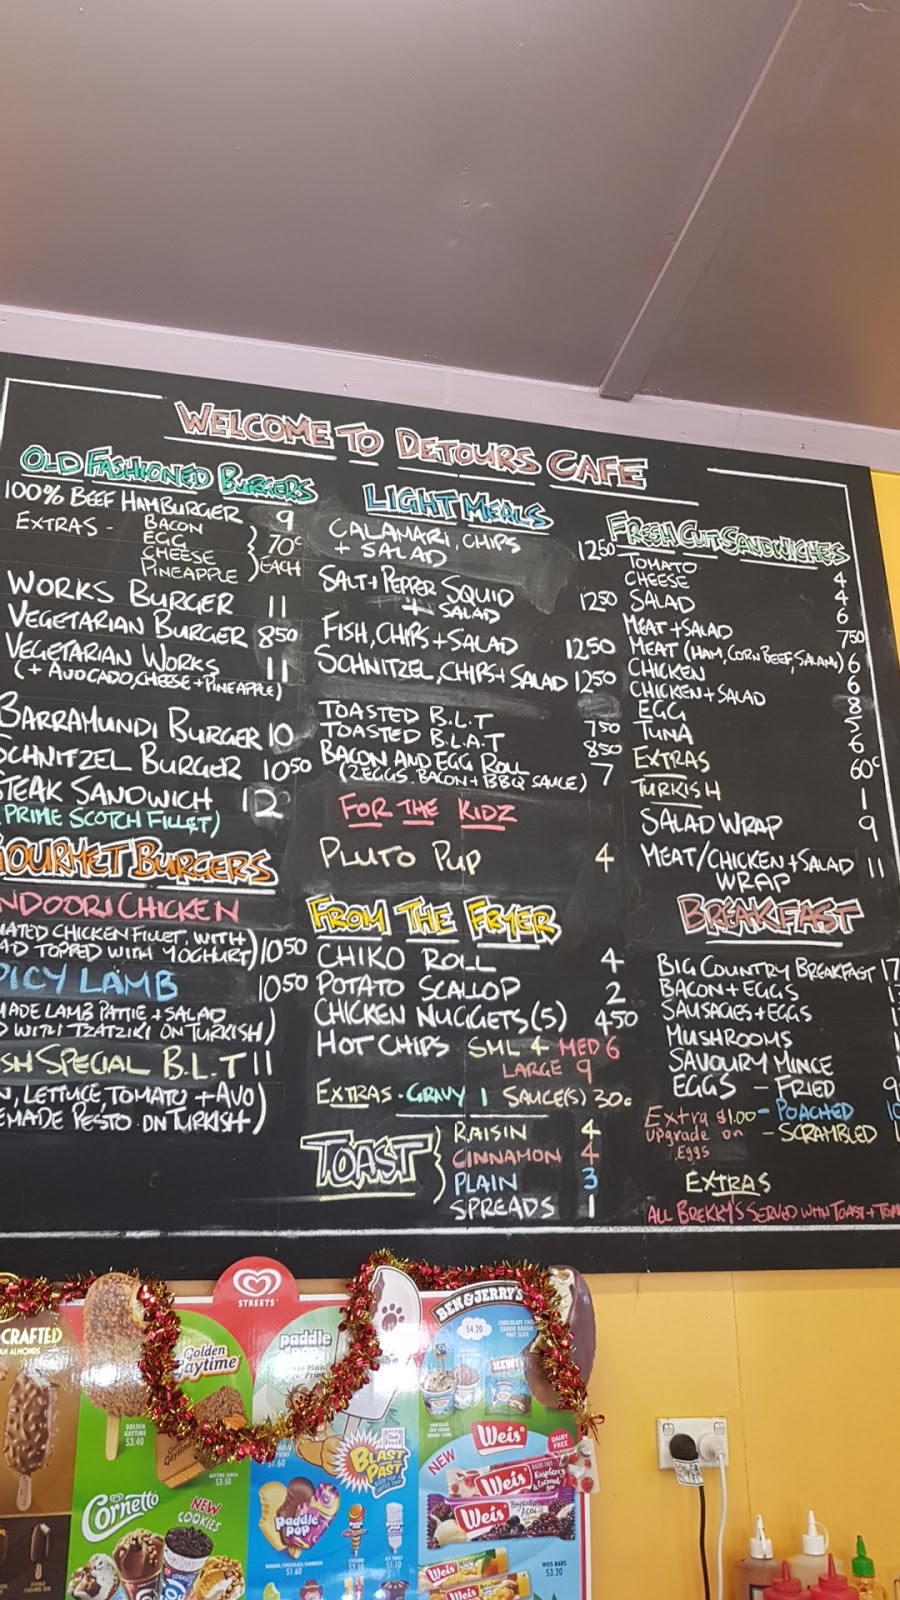 WELCOME TO DETOURS CAFE
OLD FASHIONED BURGERS
100% BEEF HAMBURGER 9
EXTRAS - BACON
EGG
CHEESE
PINEAPPLE
70c
EACH
WORKS BURGER 11
VEGETARIAN BURGER 850
VEGETARIAN WORKS 11
(+ AVOCADO, CHEESE + PINEAPPLE)
BARRAMUNDI BURGER 10
SCHNITZEL BURGER 1050
STEAK SANDWICH 12
PRIME SCOTCH FILLET)
GOURMET BURGERS
NDOORI CHICKEN
NATED CHICKEN FILLET WITH
AD TOPPED WITH YOGHURT) 1050
PICY LAMB 1050
MADE LAMB PATTIE + SALAD
D WITH TZATZIKI ON TURKISH)
SH SPECIAL B.L.T 11
N, LETTUCE, TOMATO + AVO)
EMADE PESTO ON TURKISH)
LIGHT MEALS
CALAMARI, CHIPS
+ SALAD 1250
SALT + PEPPER SQUID
+ SALAD 1250
FISH, CHIPS + SALAD 1250
SCHNITZEL, CHIPS + SALAD 1250
TOASTED B.L.T 750
TOASTED B.L.A.T 850
BACON AND EGG ROLL 7
(2 EGGS, BACON + BBQ SAUCE)
FOR THE KIDZ
PLUTO PUP 4
FROM THE FRYER
CHIKO ROLL 4
POTATO SCALLOP 2
CHICKEN NUGGETS (5) 450
HOT CHIPS SML 4 MED 6
LARGE 9
EXTRAS - GRAVY 1 SAUCE(S) 30c
TOAST
RAISIN 4
CINNAMON 4
PLAIN 3
SPREADS 1
FRESH CUT SANDWICHES
TOMATO 4
CHEESE 4
SALAD 6
MEAT + SALAD 750
MEAT (HAM, CORN BEEF, SALAMI) 6
CHICKEN 6
CHICKEN + SALAD 8
EGG 5
TUNA 6
EXTRAS 60c
TURKISH 1
SALAD WRAP 9
MEAT/CHICKEN + SALAD 11
WRAP
BREAKFAST
BIG COUNTRY BREAKFAST 17
BACON + EGGS
SAUSAGES + EGGS
MUSHROOMS
SAVOURY MINCE
EGGS - FRIED 9
- POACHED 10
- SCRAMBLED
Extra $1.00
upgrade on
Eggs
EXTRAS
ALL BREKKY'S SERVED WITH TOAST + TOM
CRAFTED
AN ALMONDS
STREETS
Golden
Gaytime
GOLDEN
GAYTIME
$3.40
$3.50
Cornetto
NEW
COOKIES
paddle
$1.60
BLAST
PAST
Paddle
POP
$1.60
$3.10
BEN & JERRY'S
$4.20
NEW!
NEW
Weis
DAIRY
FREE
Weis
Raspberry
Weis
Weis
WEIS BARS
$3.20